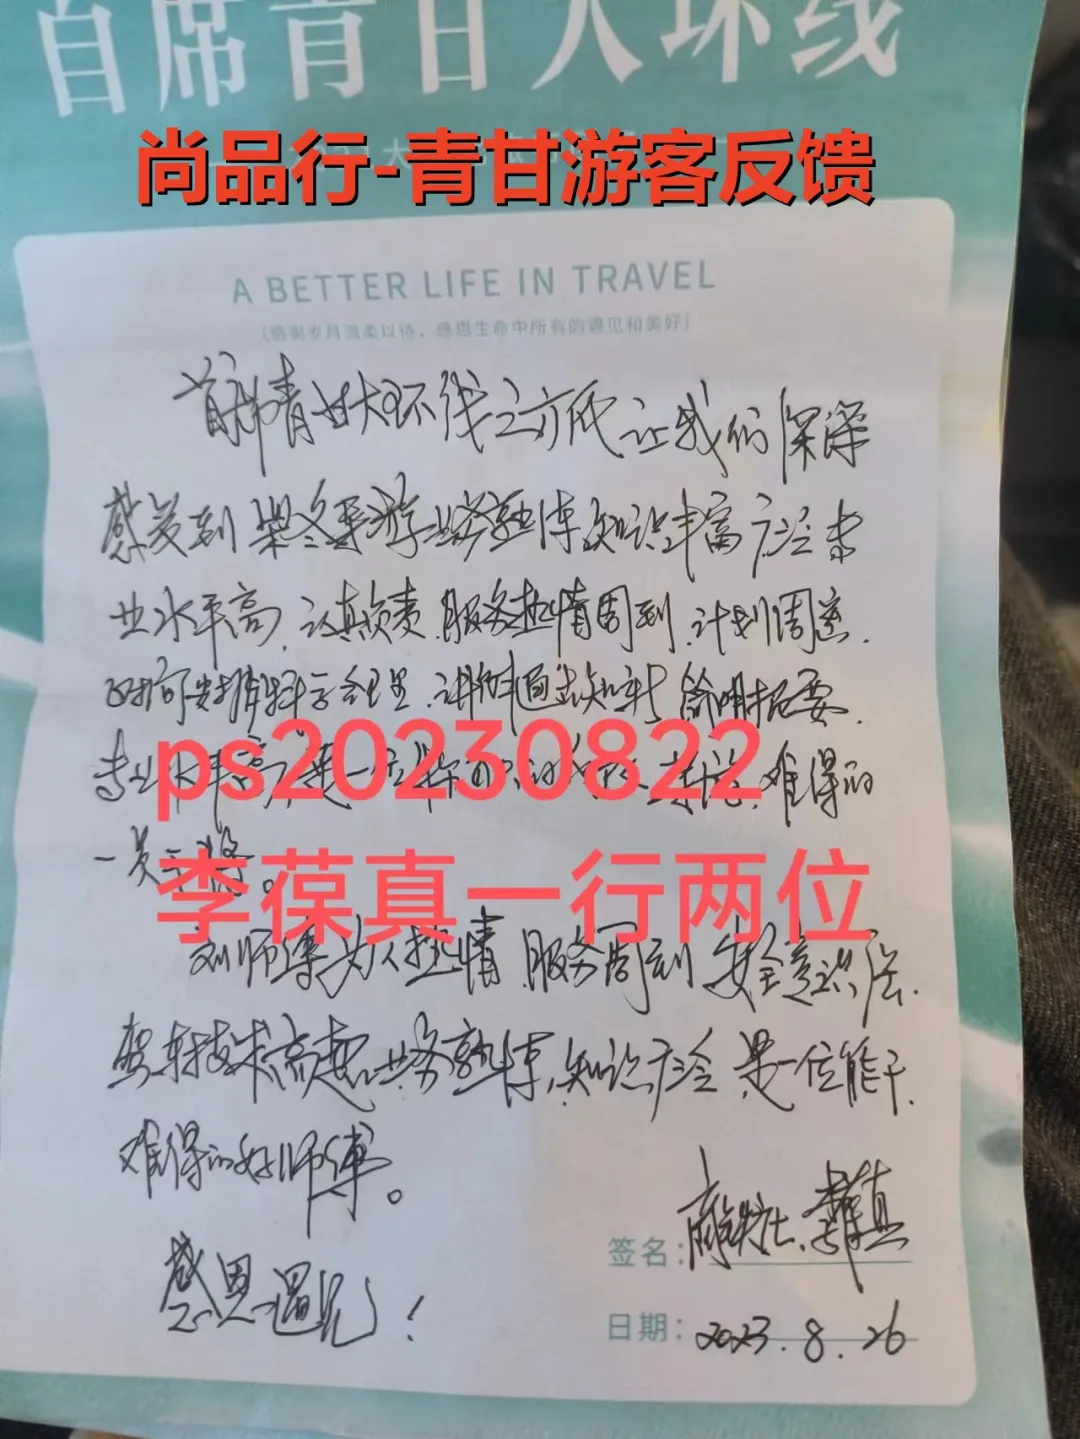 首席青甘大环线
尚品行-青甘游客反馈
A BETTER LIFE IN TRAVEL
(感谢岁月温柔以待，感恩生命中所有的遇见和美好)
首席青甘大环线之旅让我们深深
感受到柴冬导游业务熟悉知识丰富广泛专
业水平高.认真负责.服务热情周到.计划周密.
时间安排科学合理.讲解通古知今简明扼要.
ps20230822
专业水平高是一位难得的
李葆真一行两位
一员干将。
刘师傅为人热情.服务周到安全意识强.
驾车技术高超.业务熟悉.知识广泛是一位能干.
难得的好师傅。
感恩遇见！
签名：李葆真
日期：2023.8.26